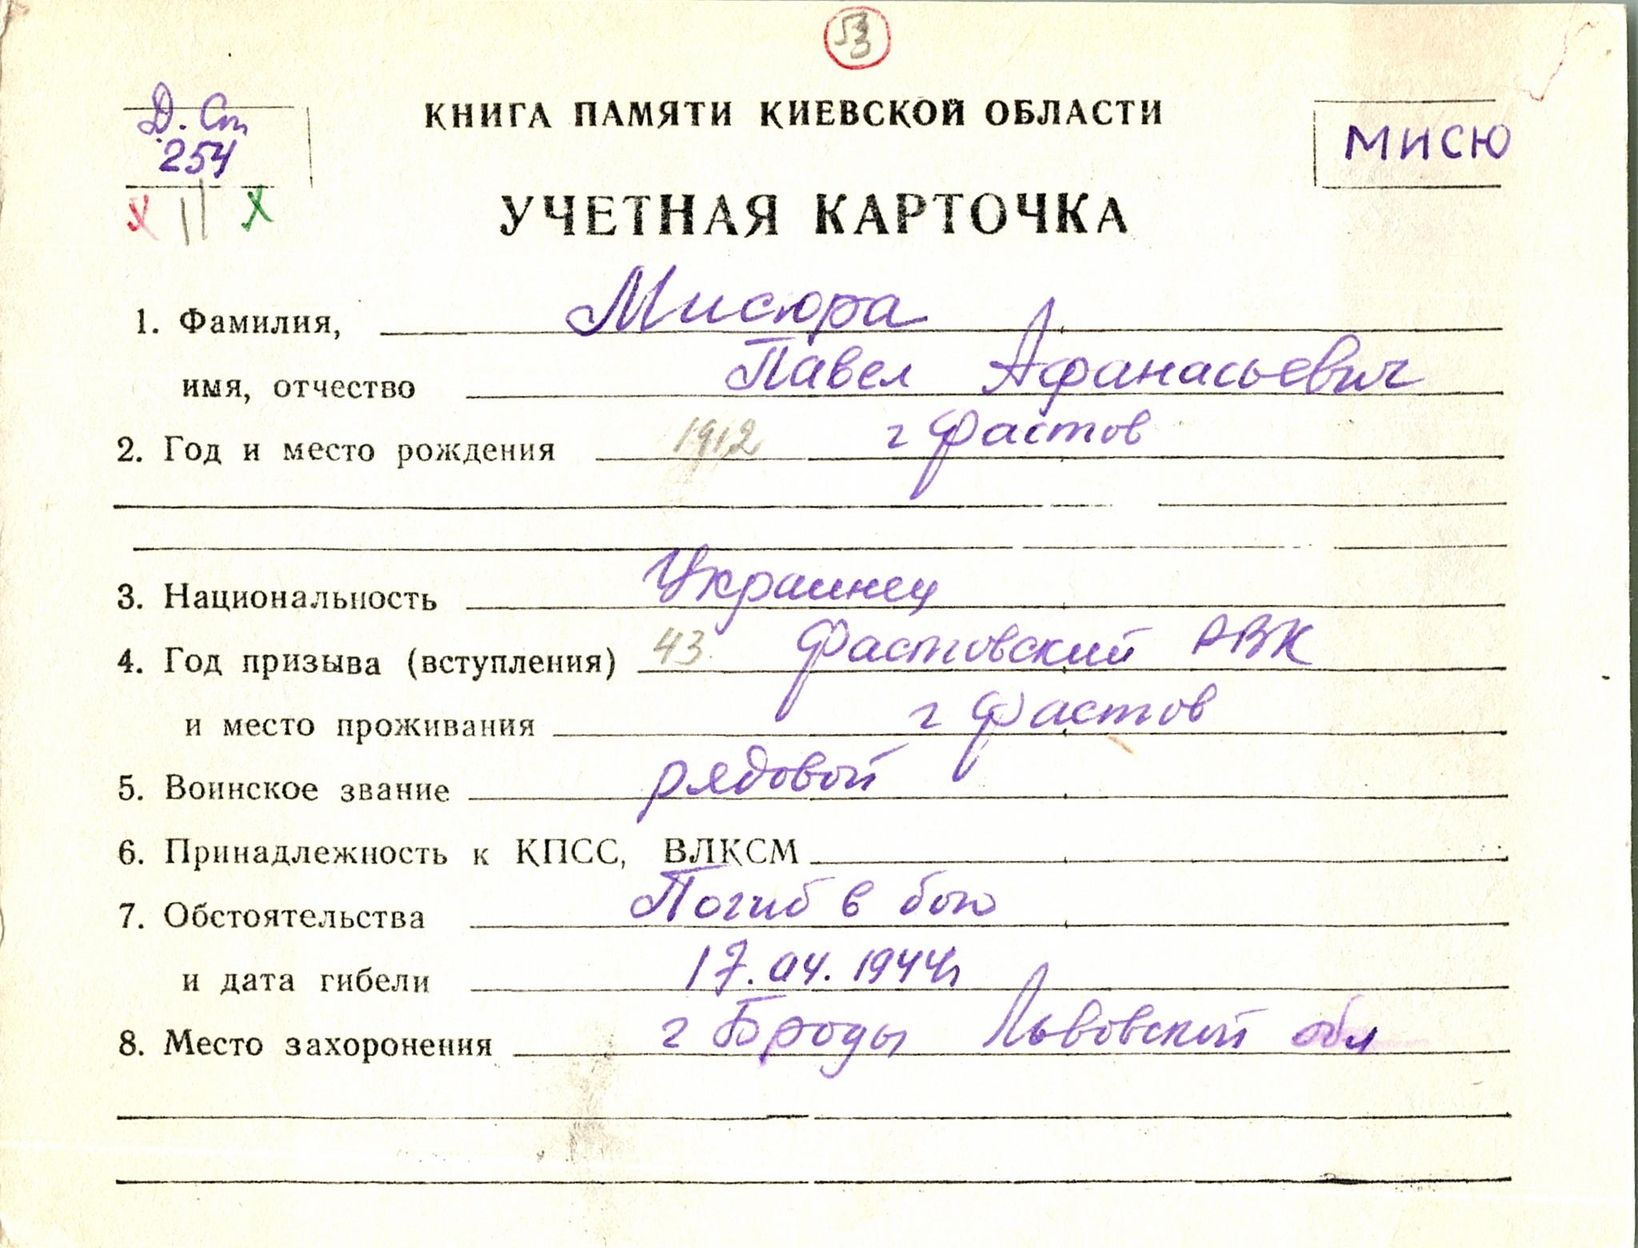 53
Д. Ст.
254
КНИГА ПАМЯТИ КИЕВСКОЙ ОБЛАСТИ
МИСЮ
х || х
УЧЕТНАЯ КАРТОЧКА
1. Фамилия, Мисюра
имя, отчество Павел Афанасьевич
2. Год и место рождения 1912 г Фастов
3. Национальность Украинец
4. Год призыва (вступления) 43 Фастовский РВК
и место проживания г Фастов
5. Воинское звание рядовой
6. Принадлежность к КПСС, ВЛКСМ
7. Обстоятельства Погиб в бою
и дата гибели 17.04.1944г
8. Место захоронения г Броды Львовской обл